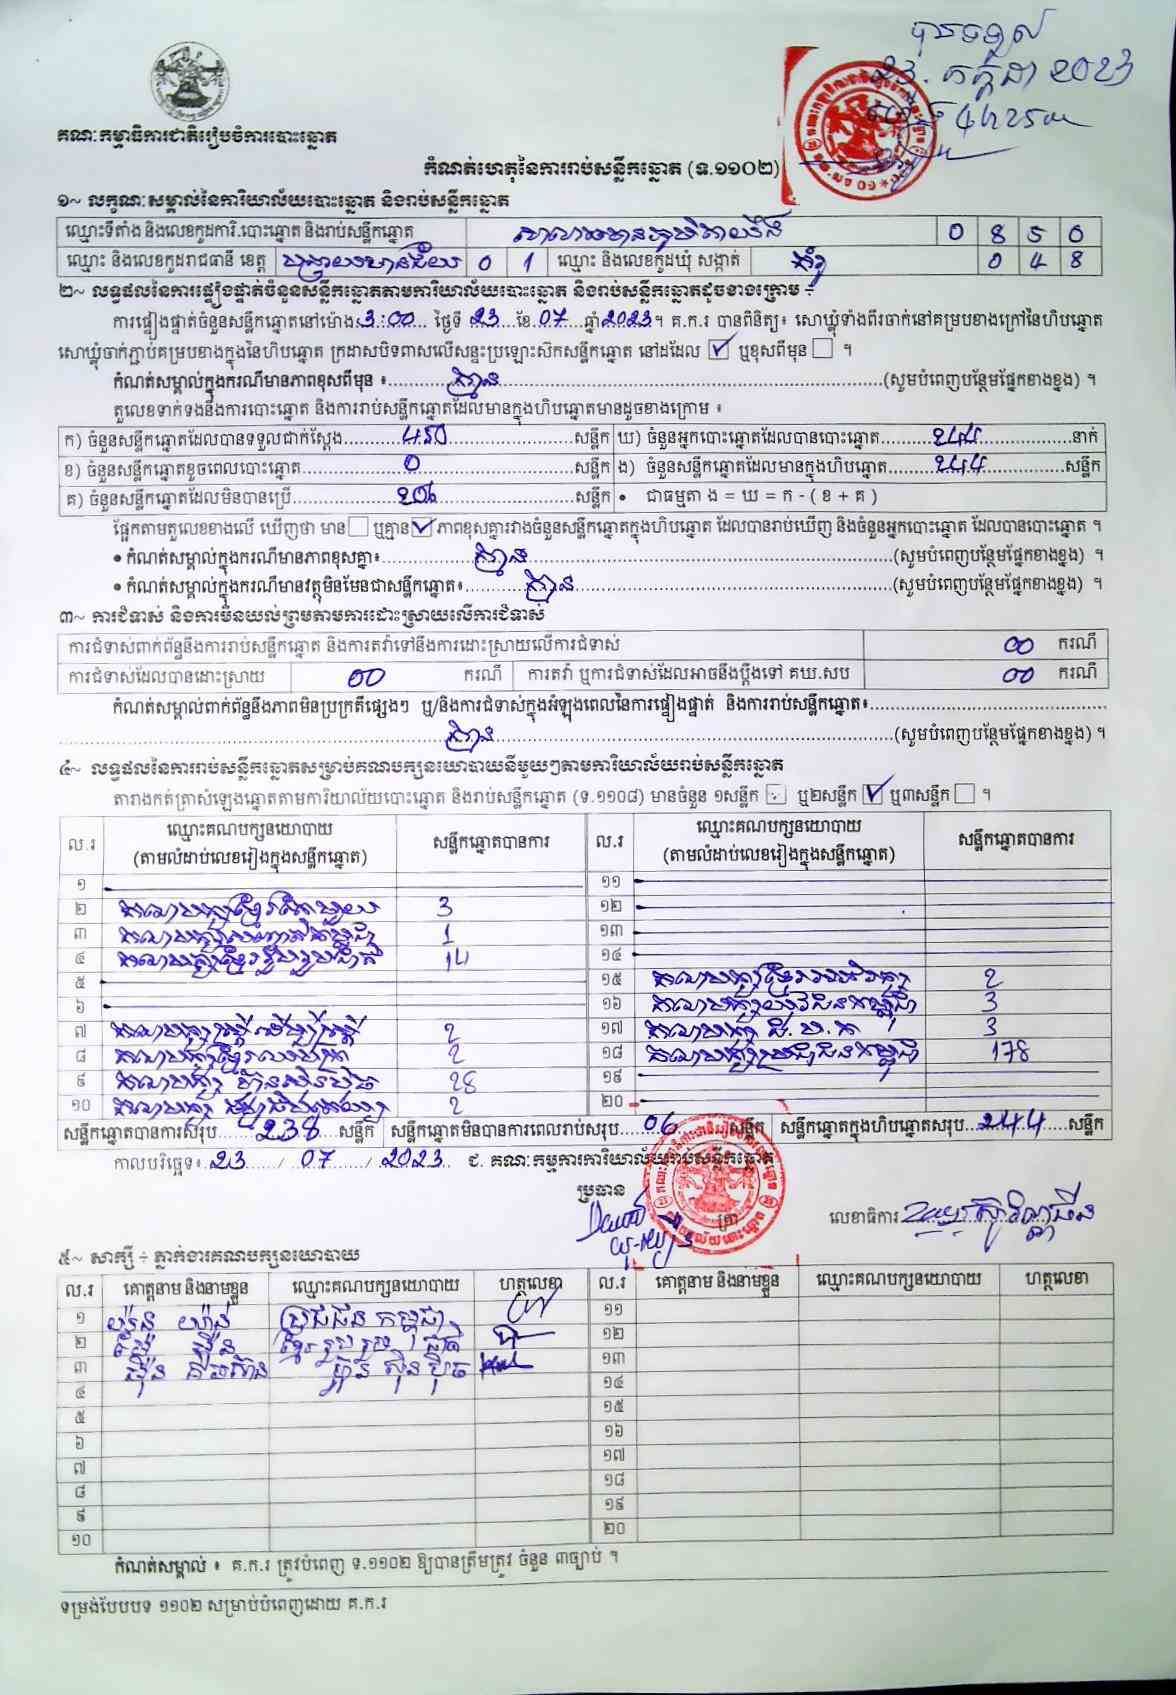 បានទទួល
23. កក្កដា 2023
4h25m
គណៈកម្មាធិការជាតិរៀបចំការបោះឆ្នោត
កំណត់ហេតុនៃការរាប់សន្លឹកឆ្នោត (ទ.១១០២)
១~ លក្ខណៈសម្គាល់នៃការិយាល័យបោះឆ្នោត និងរាប់សន្លឹកឆ្នោត
ឈ្មោះទីតាំង និងលេខកូដការិ.បោះឆ្នោត និងរាប់សន្លឹកឆ្នោត 0 8 5 0
ឈ្មោះ និងលេខកូដរាជធានី ខេត្ត បន្ទាយមានជ័យ 0 1 ឈ្មោះ និងលេខកូដឃុំ សង្កាត់ 0 4 8
២~ លទ្ធផលនៃការផ្ទៀងផ្ទាត់ចំនួនសន្លឹកឆ្នោតតាមការិយាល័យបោះឆ្នោត និងរាប់សន្លឹកឆ្នោតដូចខាងក្រោម ÷
ការផ្ទៀងផ្ទាត់ចំនួនសន្លឹកឆ្នោតនៅម៉ោង 3:00 ថ្ងៃទី 23 ខែ 07 ឆ្នាំ 2023។ គ.ក.រ បានពិនិត្យ៖ សោឃ្លុំទាំងពីរចាក់នៅគម្របខាងក្រៅនៃហិបឆ្នោត
សោឃ្លុំចាក់ភ្ជាប់គម្របខាងក្នុងនៃហិបឆ្នោត ក្រដាសបិទពាសលើសន្ទះប្រឡោះស៊កសន្លឹកឆ្នោត នៅដដែល ✓ ឬខុសពីមុន ។
កំណត់សម្គាល់ក្នុងករណីមានភាពខុសពីមុន ៖ គ្មាន (សូមបំពេញបន្ថែមផ្នែកខាងខ្នង) ។
តួលេខទាក់ទងនឹងការបោះឆ្នោត និងការរាប់សន្លឹកឆ្នោតដែលមានក្នុងហិបឆ្នោតមានដូចខាងក្រោម ៖
ក) ចំនួនសន្លឹកឆ្នោតដែលបានទទួលជាក់ស្តែង 450 សន្លឹក ឃ) ចំនួនអ្នកបោះឆ្នោតដែលបានបោះឆ្នោត 244 នាក់
ខ) ចំនួនសន្លឹកឆ្នោតខូចពេលបោះឆ្នោត 0 សន្លឹក ង) ចំនួនសន្លឹកឆ្នោតដែលមានក្នុងហិបឆ្នោត 244 សន្លឹក
គ) ចំនួនសន្លឹកឆ្នោតដែលមិនបានប្រើ 206 សន្លឹក • ជាធម្មតា ង = ឃ = ក - ( ខ + គ )
ផ្អែកតាមតួលេខខាងលើ ឃើញថា មាន ឬគ្មាន ✓ ភាពខុសគ្នារវាងចំនួនសន្លឹកឆ្នោតក្នុងហិបឆ្នោត ដែលបានរាប់ឃើញ និងចំនួនអ្នកបោះឆ្នោត ដែលបានបោះឆ្នោត ។
• កំណត់សម្គាល់ក្នុងករណីមានភាពខុសគ្នា៖ គ្មាន (សូមបំពេញបន្ថែមផ្នែកខាងខ្នង) ។
• កំណត់សម្គាល់ក្នុងករណីមានវត្ថុមិនមែនជាសន្លឹកឆ្នោត៖ គ្មាន (សូមបំពេញបន្ថែមផ្នែកខាងខ្នង) ។
៣~ ការជំទាស់ និងការមិនយល់ព្រមតាមការដោះស្រាយលើការជំទាស់
ការជំទាស់ពាក់ព័ន្ធនឹងការរាប់សន្លឹកឆ្នោត និងការតវ៉ាទៅនឹងការដោះស្រាយលើការជំទាស់ 00 ករណី
ការជំទាស់ដែលបានដោះស្រាយ 00 ករណី ការតវ៉ា ឬការជំទាស់ដែលអាចនឹងប្តឹងទៅ គឃ.សប 00 ករណី
កំណត់សម្គាល់ពាក់ព័ន្ធនឹងភាពមិនប្រក្រតីផ្សេងៗ ឬ/និងការជំទាស់ក្នុងអំឡុងពេលនៃការផ្ទៀងផ្ទាត់ និងការរាប់សន្លឹកឆ្នោត៖
គ្មាន (សូមបំពេញបន្ថែមផ្នែកខាងខ្នង) ។
៤~ លទ្ធផលនៃការរាប់សន្លឹកឆ្នោតសម្រាប់គណបក្សនយោបាយនីមួយៗតាមការិយាល័យរាប់សន្លឹកឆ្នោត
តារាងកត់ត្រាសំឡេងឆ្នោតតាមការិយាល័យបោះឆ្នោត និងរាប់សន្លឹកឆ្នោត (ទ.១១០៨) មានចំនួន ១សន្លឹក ឬ២សន្លឹក ✓ ឬ៣សន្លឹក ។
ល.រ ឈ្មោះគណបក្សនយោបាយ (តាមលំដាប់លេខរៀងក្នុងសន្លឹកឆ្នោត) សន្លឹកឆ្នោតបានការ ល.រ ឈ្មោះគណបក្សនយោបាយ (តាមលំដាប់លេខរៀងក្នុងសន្លឹកឆ្នោត) សន្លឹកឆ្នោតបានការ
១ ១១
២ គណបក្សខ្មែរតែមួយ 3 ១២
៣ 1 ១៣
៤ គណបក្សខ្មែររួបរួមជាតិ 14 ១៤
៥ ១៥ គណបក្សខ្មែរអភិរក្ស 2
៦ ១៦ គណបក្សយុវជនកម្ពុជា 3
៧ គណបក្សស្ត្រីដើម្បីស្ត្រី 2 ១៧ គណបក្ស ជ.ប.ក 3
៨ 2 ១៨ គណបក្សប្រជាជនកម្ពុជា 178
៩ គណបក្ស ហ៊្វុនស៊ិនប៉ិច 28 ១៩
១០ គណបក្ស 2 ២០
សន្លឹកឆ្នោតបានការសរុប 238 សន្លឹក សន្លឹកឆ្នោតមិនបានការពេលរាប់សរុប 06 សន្លឹក សន្លឹកឆ្នោតក្នុងហិបឆ្នោតសរុប 244 សន្លឹក
កាលបរិច្ឆេទ៖ 23 / 07 / 2023 ជ. គណៈកម្មការការិយាល័យរាប់សន្លឹកឆ្នោត
ប្រធាន
ត្រា លេខាធិការ
៥~ សាក្សី ÷ ភ្នាក់ងារគណបក្សនយោបាយ
ល.រ គោត្តនាម និងនាមខ្លួន ឈ្មោះគណបក្សនយោបាយ ហត្ថលេខា ល.រ គោត្តនាម និងនាមខ្លួន ឈ្មោះគណបក្សនយោបាយ ហត្ថលេខា
១ ប្រជាជនកម្ពុជា ១១
២ ខ្មែររួបរួមជាតិ ១២
៣ ហ៊្វុនស៊ិនប៉ិច ១៣
៤ ១៤
៥ ១៥
៦ ១៦
៧ ១៧
៨ ១៨
៩ ១៩
១០ ២០
កំណត់សម្គាល់ ៖ គ.ក.រ ត្រូវបំពេញ ទ.១១០២ ឱ្យបានត្រឹមត្រូវ ចំនួន ៣ច្បាប់ ។
ទម្រង់បែបបទ ១១០២ សម្រាប់បំពេញដោយ គ.ក.រ